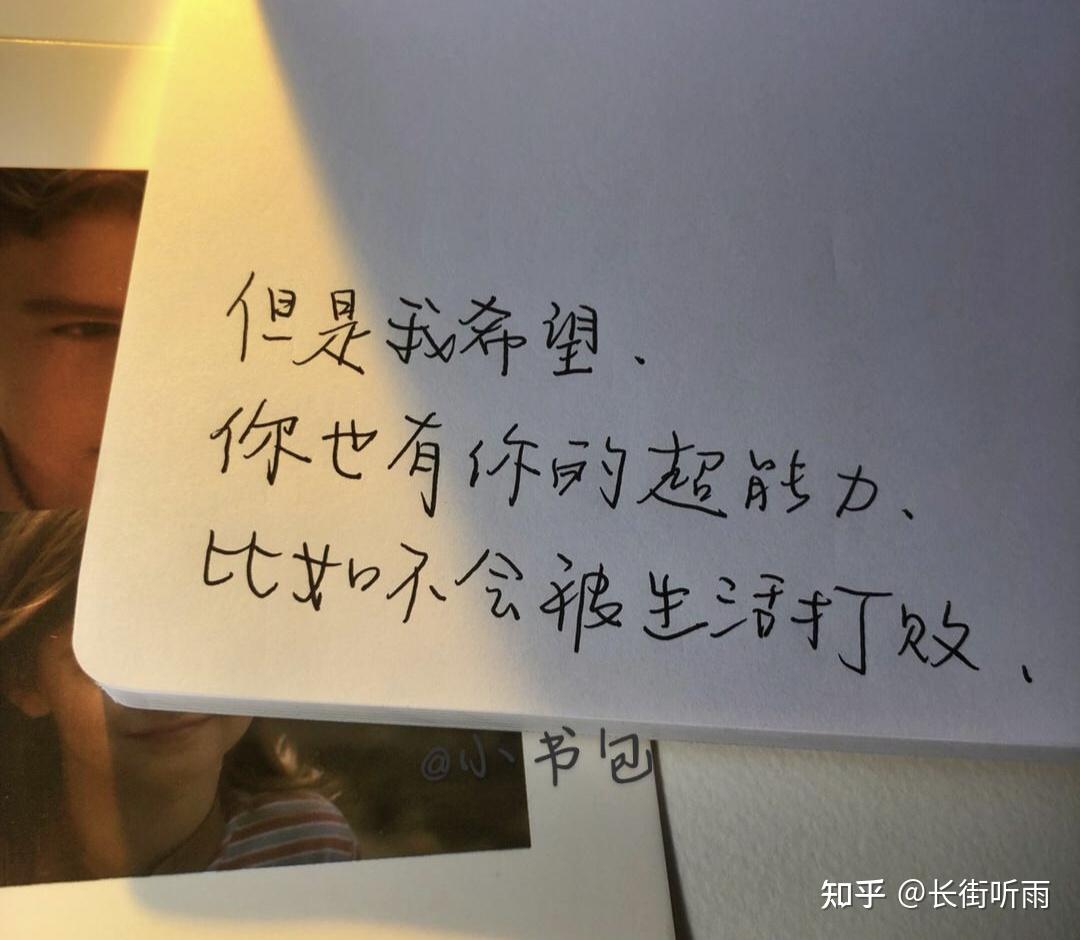 但是我希望.
你也有你的超能力、
比如不会被生活打败、
@小书包
知乎 @长街听雨